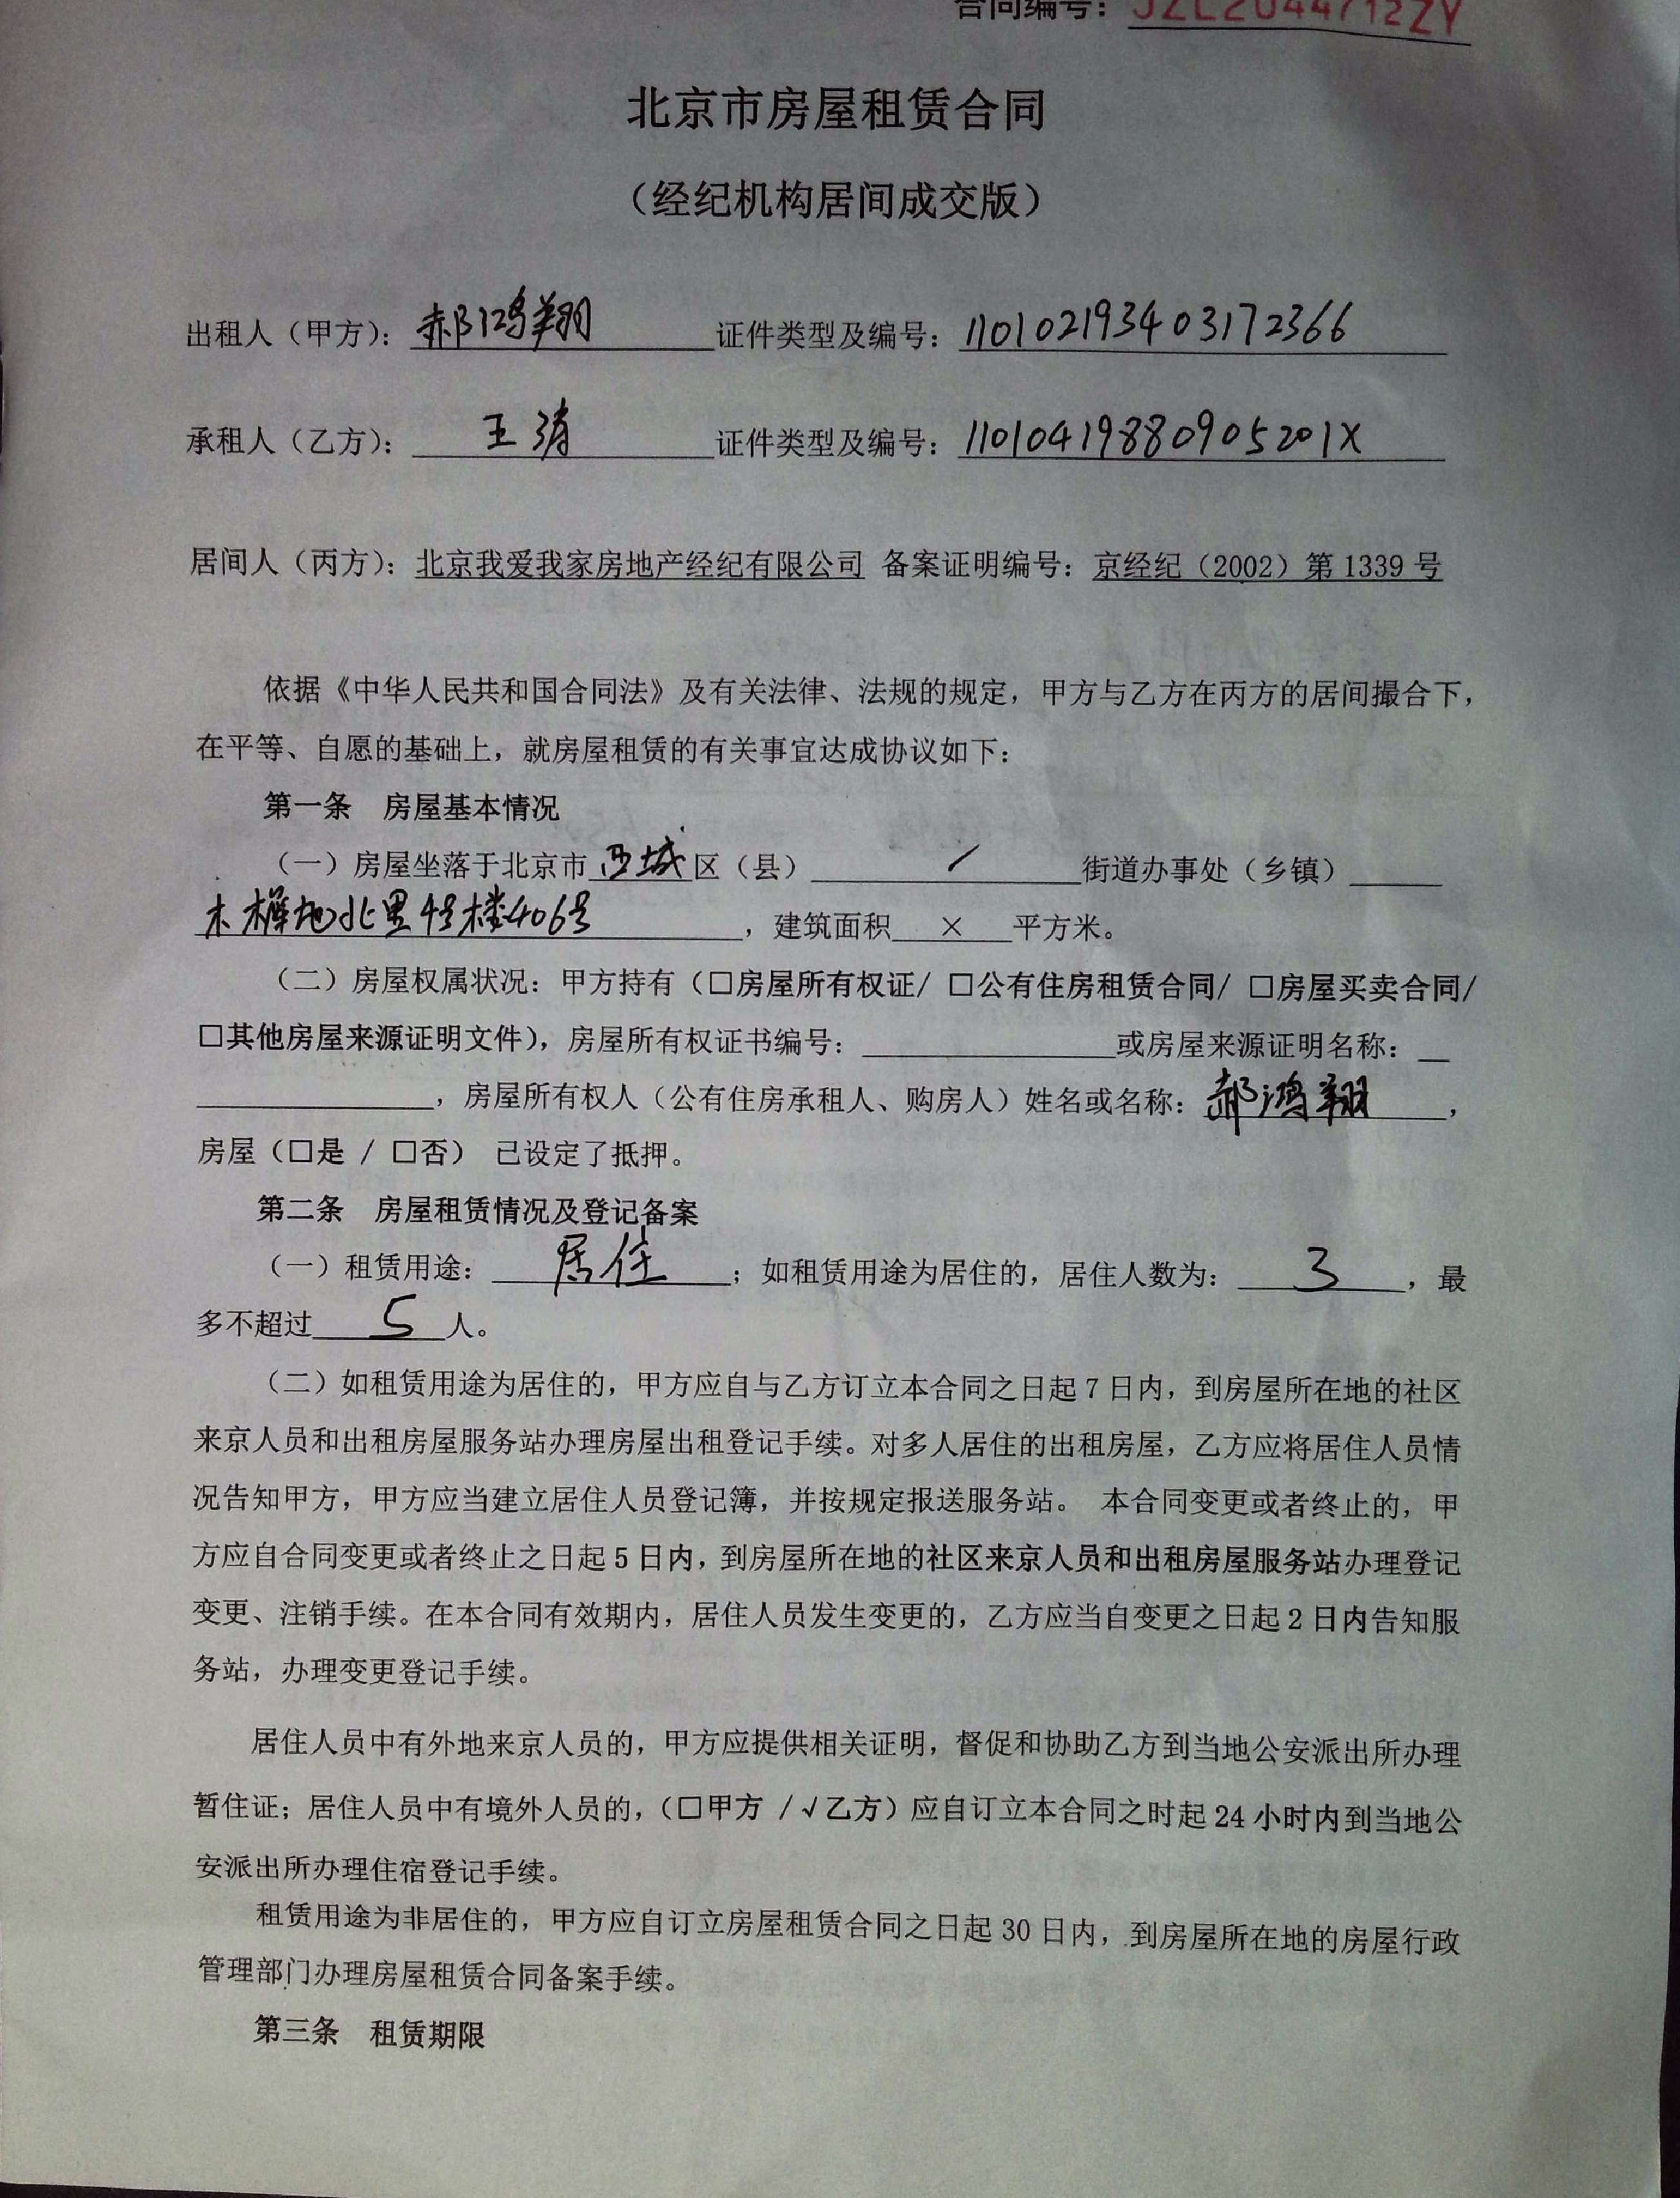 合同编号：JZL2044712ZY
北京市房屋租赁合同
（经纪机构居间成交版）
出租人（甲方）：郝鸿翔 证件类型及编号：110102193403172366
承租人（乙方）：王 证件类型及编号：11010419880905201X
居间人（丙方）：北京我爱我家房地产经纪有限公司 备案证明编号：京经纪（2002）第 1339 号
依据《中华人民共和国合同法》及有关法律、法规的规定，甲方与乙方在丙方的居间撮合下，
在平等、自愿的基础上，就房屋租赁的有关事宜达成协议如下：
第一条 房屋基本情况
（一）房屋坐落于北京市西城区（县）／街道办事处（乡镇）
木樨地北里4号楼406号，建筑面积×平方米。
（二）房屋权属状况：甲方持有（□房屋所有权证/ □公有住房租赁合同/ □房屋买卖合同/
□其他房屋来源证明文件），房屋所有权证书编号：＿＿＿＿或房屋来源证明名称：＿
＿＿＿＿，房屋所有权人（公有住房承租人、购房人）姓名或名称：郝鸿翔，
房屋（□是 / □否） 已设定了抵押。
第二条 房屋租赁情况及登记备案
（一）租赁用途：居住；如租赁用途为居住的，居住人数为：3，最
多不超过5人。
（二）如租赁用途为居住的，甲方应自与乙方订立本合同之日起 7 日内，到房屋所在地的社区
来京人员和出租房屋服务站办理房屋出租登记手续。对多人居住的出租房屋，乙方应将居住人员情
况告知甲方，甲方应当建立居住人员登记簿，并按规定报送服务站。 本合同变更或者终止的，甲
方应自合同变更或者终止之日起 5 日内，到房屋所在地的社区来京人员和出租房屋服务站办理登记
变更、注销手续。在本合同有效期内，居住人员发生变更的，乙方应当自变更之日起 2 日内告知服
务站，办理变更登记手续。
居住人员中有外地来京人员的，甲方应提供相关证明，督促和协助乙方到当地公安派出所办理
暂住证；居住人员中有境外人员的，（□甲方 /√乙方）应自订立本合同之时起 24 小时内到当地公
安派出所办理住宿登记手续。
租赁用途为非居住的，甲方应自订立房屋租赁合同之日起 30 日内，到房屋所在地的房屋行政
管理部门办理房屋租赁合同备案手续。
第三条 租赁期限